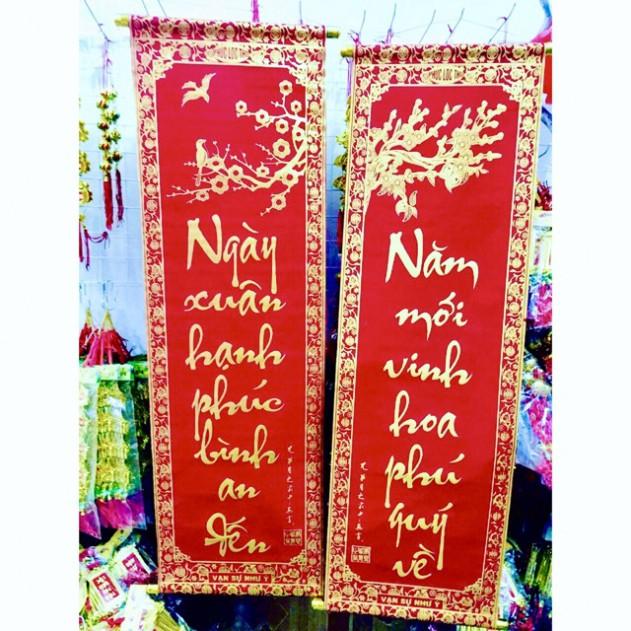 PHÚC LỘC THỌ
Ngày
xuân
hạnh
phúc
bình
an
đến
VẠN SỰ NHƯ Ý
PHÚC LỘC THỌ
Năm
mới
vinh
hoa
phú
quý
về
VẠN SỰ NHƯ Ý